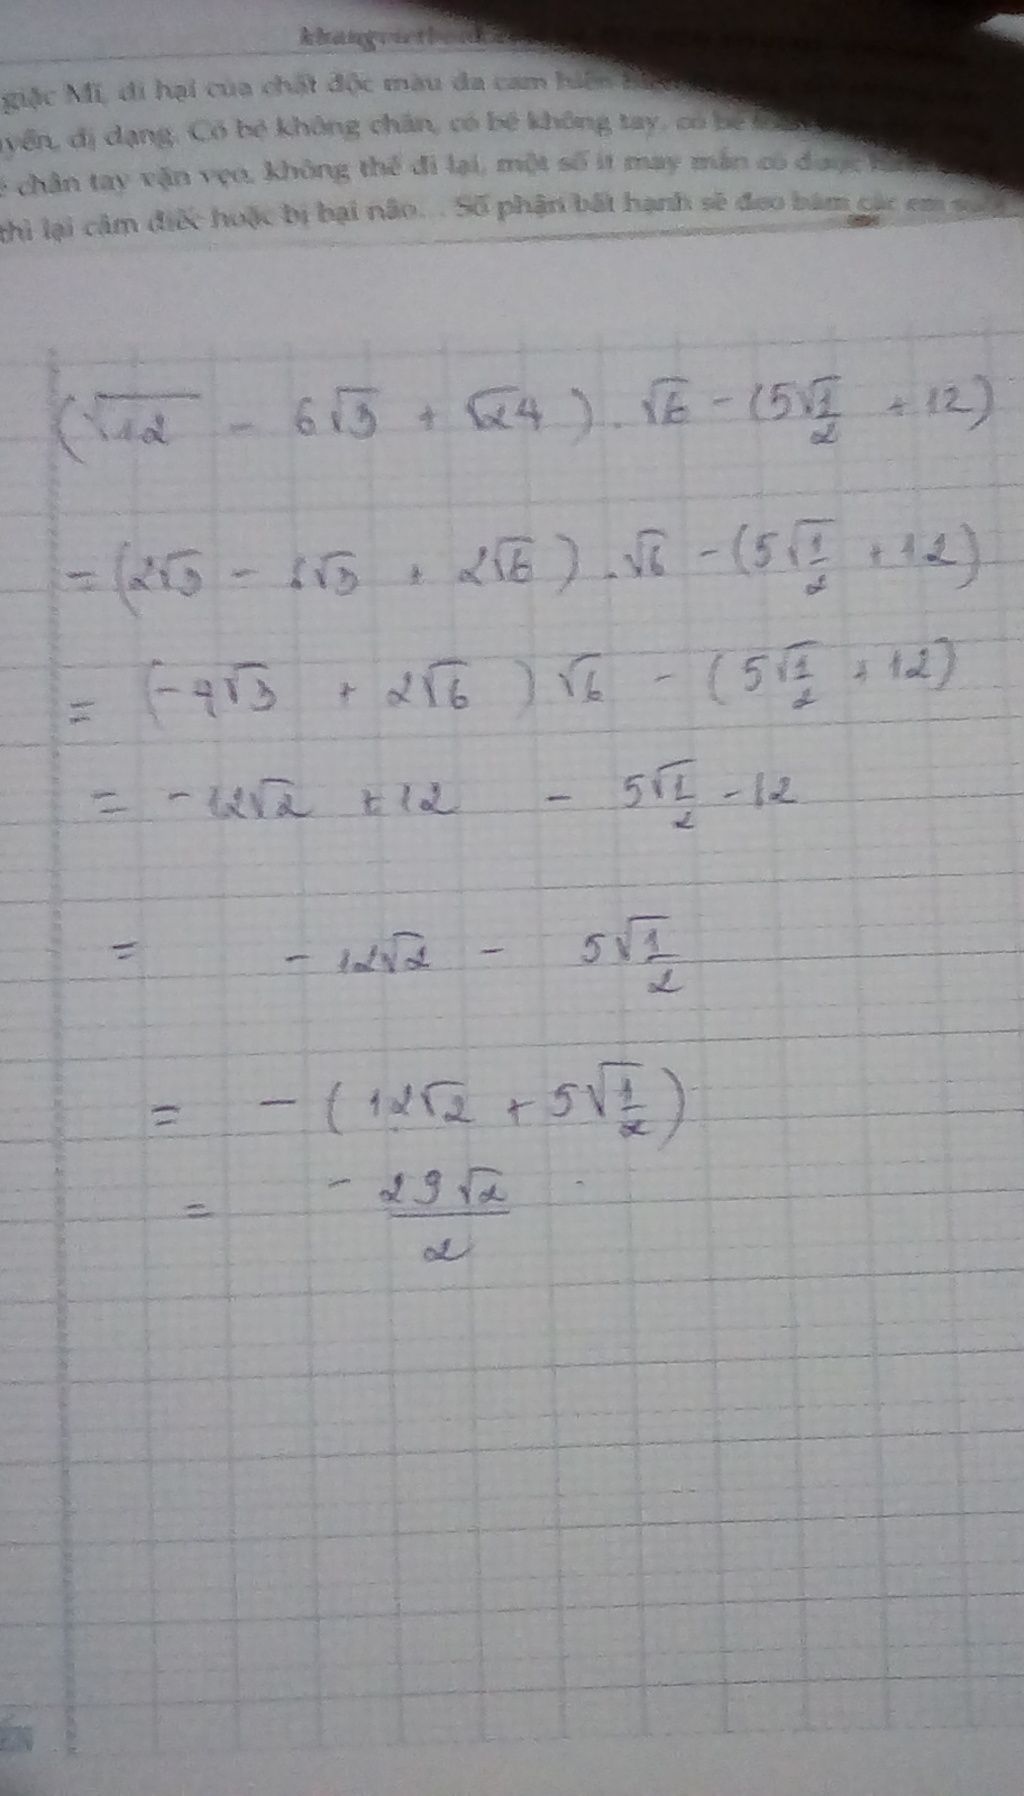 giặc Mĩ, di hại của chất độc màu da cam hiện
dị dạng. Có bé không chân, có bé không tay, có bé
chân tay vặn vẹo, không thể đi lại, một số ít may mắn có được
thì lại câm điếc hoặc bị bại não... Số phận bất hạnh sẽ đeo bám các em
(√12 - 6√3 + √24) . √6 - (5√1/2 + 12)
= (2√3 - 6√3 + 2√6) . √6 - (5√1/2 + 12)
= (-4√3 + 2√6) √6 - (5√1/2 + 12)
= -12√2 + 12 - 5√1/2 - 12
= - 12√2 - 5√1/2
= - (12√2 + 5√1/2)
= - 29√2/2